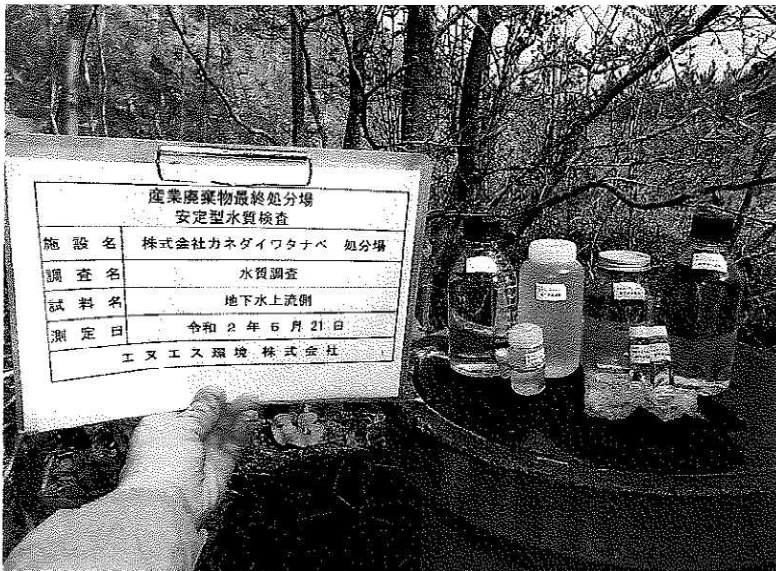 産業廃棄物最終処分場
安定型水質検査
施設名 株式会社カネダイワタナベ 処分場
調査名 水質調査
試料名 地下水上流側
測定日 令和 2 年 5 月 21 日
エヌエス環境 株式会社